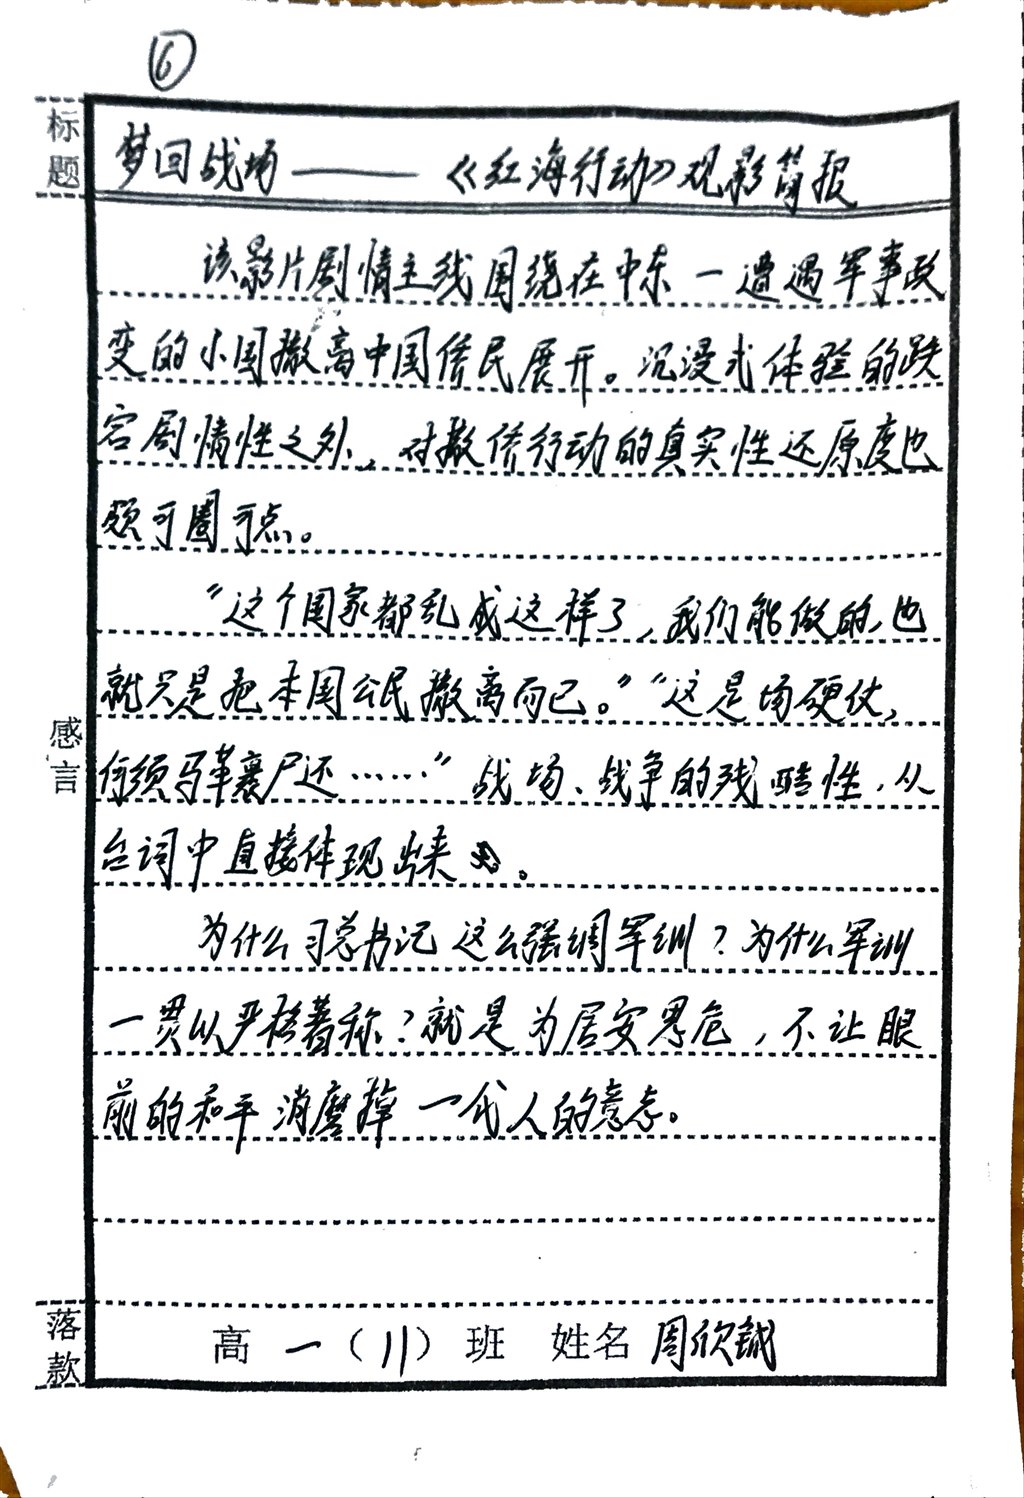 ⑥
标题
梦回战场——《红海行动》观影简报
该影片剧情主线围绕在中东一遭遇军事政
变的小国撤离中国侨民展开。沉浸式体验的跌
宕剧情性之外，对撤侨行动的真实性还原度也
颇可圈可点。
“这个国家都乱成这样了，我们能做的，也
就只是把本国公民撤离而已。”“这是场硬仗，
何须马革裹尸还……”战场、战争的残酷性，从
台词中直接体现出来。
感言
为什么习总书记这么强调军训？为什么军训
一贯以严格著称？就是为居安思危，不让眼
前的和平消磨掉一代人的意志。
落款
高一（11）班 姓名 周欣铖